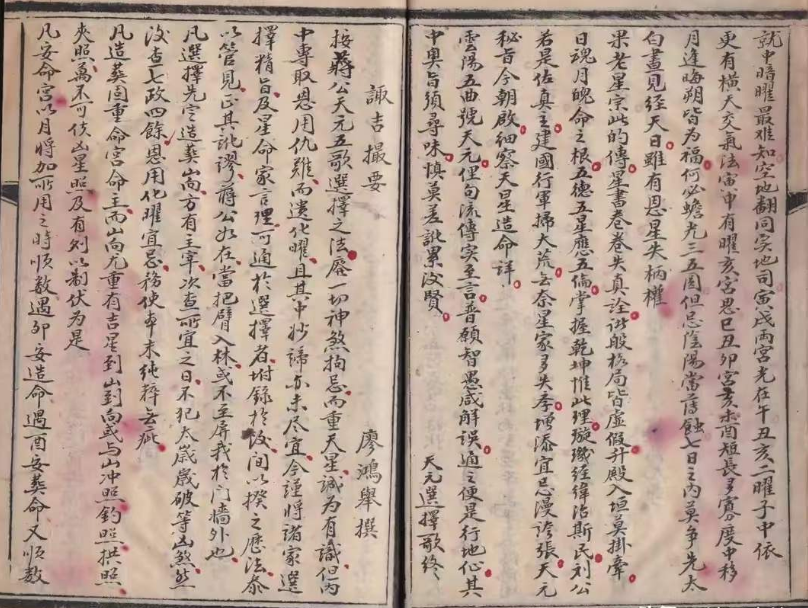 就中暗曜最难知空地翻同实地司寅戌两宫光在午丑亥二曜子中依
更有横天交氣法寅申有曜亥宫思巳丑卯宫亥未酉短長多寡度中移
月逢晦朔皆为福何必蟾光三五圆但忌陰陽當薄蝕七日之内莫争先太
白晝見经天日雖有恩星失柄權
果老星宗此的傳星書卷卷失真诠谈般格局皆虚假升殿入垣莫掛牵
日魂月魄命之根五德五星應五倫掌握乾坤惟此理璇璣经緯治斯民刘公
若是佐真主建國行軍掃大荒云奈星家多失李增添宜忌漫誇張天元
秘旨今朝啟细察天星造命詳
雲陽五曲號天元俚句流傳实至言普願智愚咸解误通之便是行地仙其
中奥旨須尋味慎莫差訛累汝賢
天元選擇歌终
諏吉撮要
廖鴻舉撰
按蔣公天元五歌選擇之法廢一切神煞拘忌而重天星誠为有識但内
中專取恩用仇难而遗化曜且其中妙諦亦未尽宜今謹將诸家選
擇精旨及星命家言理可通於選擇者附録於後间以揆之歷法叅
以管見正其訛謬蔣公如在當把臂入林或不至屏我於门墙外也
凡選擇先定造葬山向方有主宰次查所宜之日不犯太歲歲破等山煞然
後查七政四餘恩用化曜宜忌務使本末纯粹無疵
凡造葬固重命宫命主而山向尤重有吉星到山到向或与山冲照钓照拱照
夾照為不可伎凶星照及有刘以制伏为是
凡安命宫以月將加所用之時顺数遇卯安造命遇酉安葬命又顺数